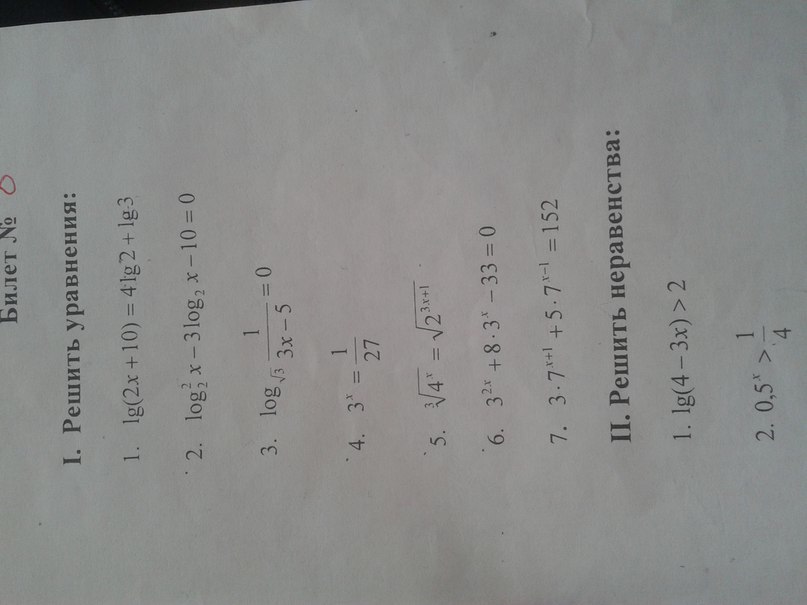 Билет №
I. Решить уравнения:
1. lg(2x + 10) = 4 lg 2 + lg 3
2. log₂² x − 3 log₂ x − 10 = 0
3. log_√3 1/(3x − 5) = 0
4. 3ˣ = 1/27
5. ∛(4ˣ) = √(2³ˣ⁺¹)
6. 3²ˣ + 8 · 3ˣ − 33 = 0
7. 3 · 7ˣ⁺¹ + 5 · 7ˣ⁻¹ = 152
II. Решить неравенства:
1. lg(4 − 3x) > 2
2. 0,5ˣ > 1/4